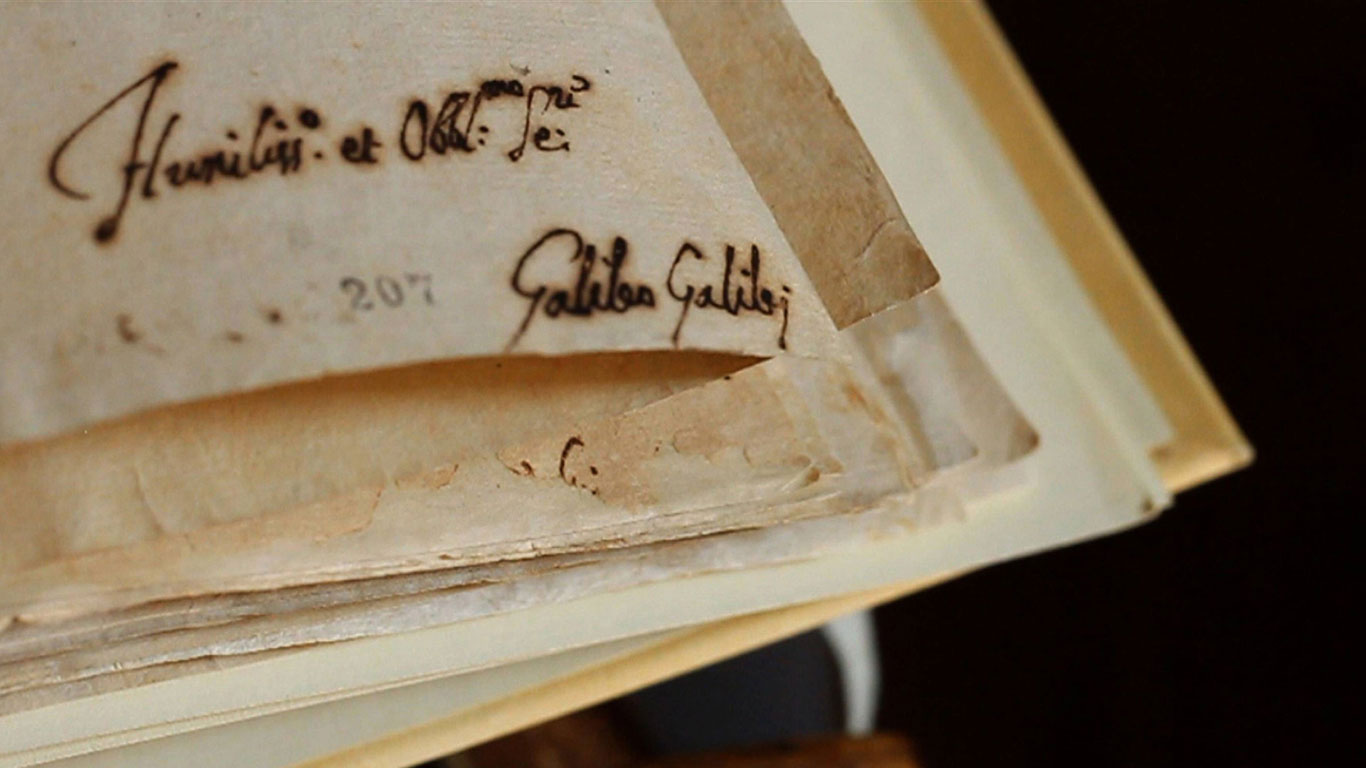 Humiliss.º et Obbl:mo Se:rº
Galileo Galilej
207